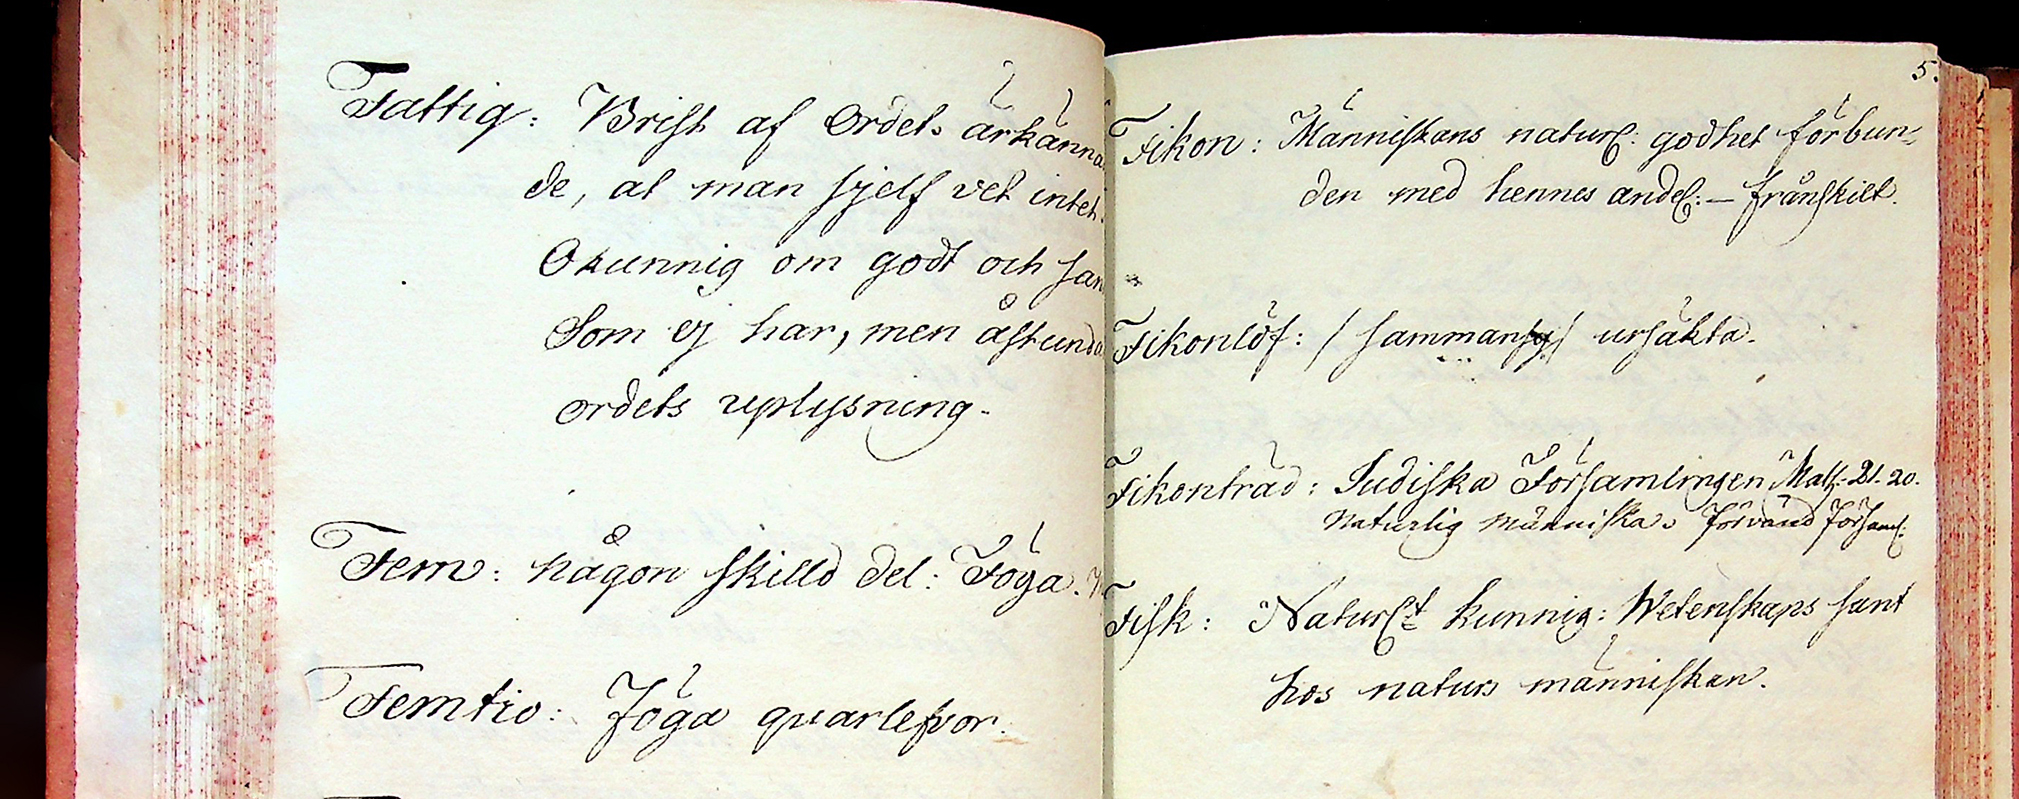 Fattig: Brist af Ordets ärkänna
de, at man sjelf vet intet.
Okunnig om godt och san
Som ej har, men åstunda
ordets uplysning.
Fem: någon skilld del: Föga.
Femtio: Föga quarlefvor.
5.
Fikon: Människans naturl: godhet förbun-
den med hennes andel: — frånskilt.
Fikonlöf: / sammansy / ursäkta.
Fikonträd: Judiska Församlingen Math. 21. 20.
Naturlig Människa. förvänd församl:
Fisk: Naturlt kunnig: Wetenskaps sant
hos naturs människan.